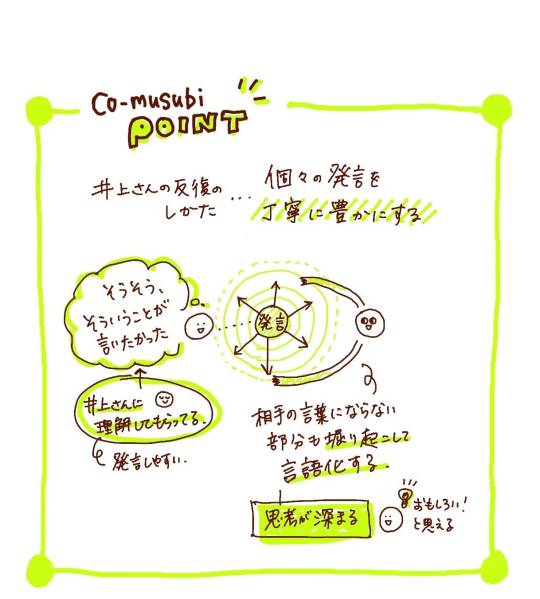 Co-musubi
POINT
井上さんの反復の
しかた…
個々の発言を
丁寧に豊かにする
そうそう、
そういうことが
言いたかった
発言
井上さんに
理解してもらってる。
発言しやすい。
相手の言葉にならない
部分も掘り起こして
言語化する。
思考が深まる
おもしろい!
と思える